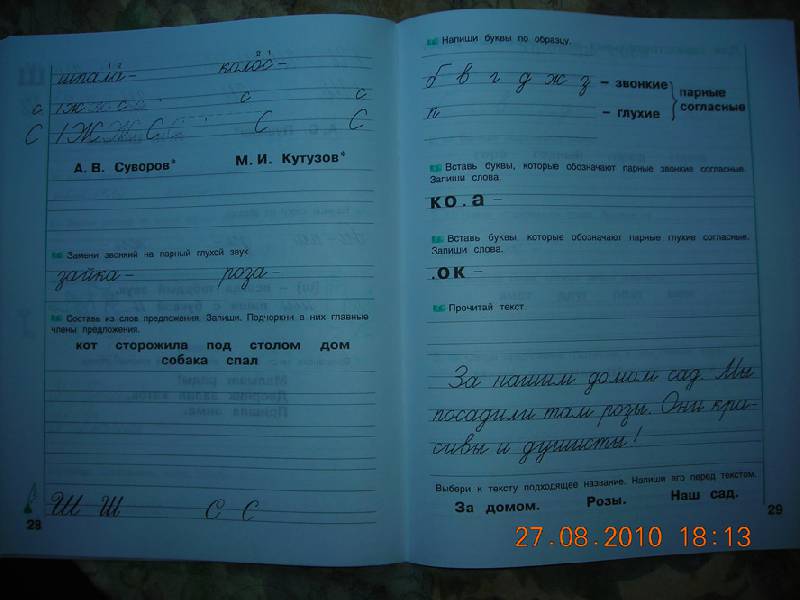 1 2
2 1
шпала- колос-
с ж ж с с с с
С Ж Ж С С С С
А. В. Суворов* М. И. Кутузов*
Замени звонкий на парный глухой звук.
зайка- роза-
Составь из слов предложения. Запиши. Подчеркни в них главные
члены предложения.
кот сторожила под столом дом
собака спал
Ш Ш С С
28
Напиши буквы по образцу.
б в г д ж з – звонкие
п – глухие
парные
согласные
Вставь буквы, которые обозначают парные звонкие согласные.
Запиши слова.
ко.а –
Вставь буквы которые обозначают парные глухие согласные.
Запиши слова.
.ок –
Прочитай текст.
За нашим домом сад. Мы
посадили там розы. Они кра-
сивы и душисты!
Выбери к тексту подходящее название. Напиши его перед текстом.
За домом. Розы. Наш сад.
29
27.08.2010 18:13